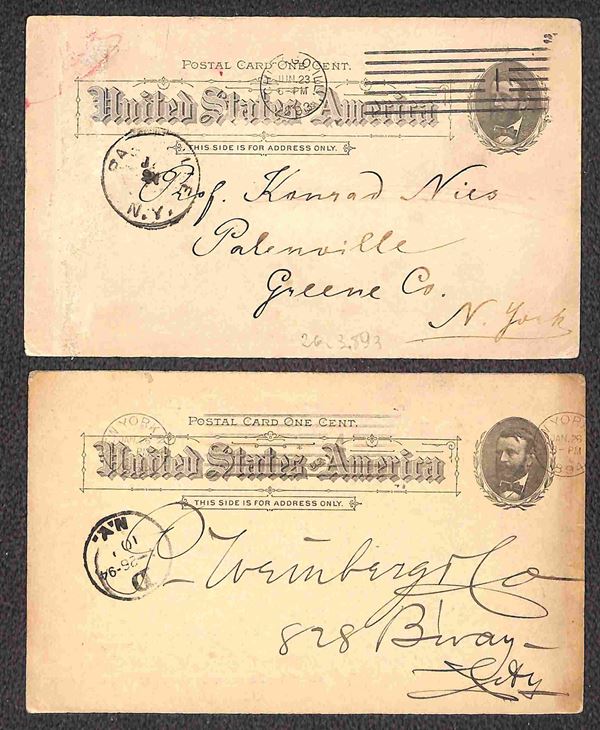 POSTAL CARD ONE CENT.
United States America
THIS SIDE IS FOR ADDRESS ONLY.
JUN. 23
6-PM
N.Y.
Prof. Konrad Nies
Palenville
Greene Co.
N. York
POSTAL CARD ONE CENT.
United States of America
THIS SIDE IS FOR ADDRESS ONLY.
N.Y.
10
1-26-94
D
YORK
YORK
JAN. 26
-PM
94
Weinberg & Co
828 B'way
City